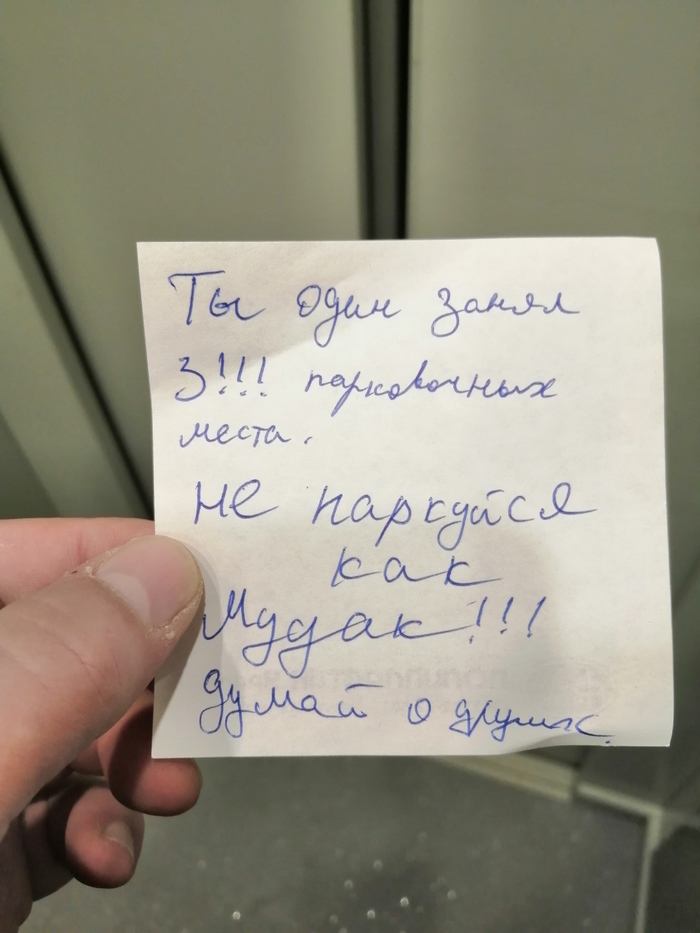 Ты один занял
3!!! парковочных
места.
Не паркуйся
как
Мудак!!!
думай о других.